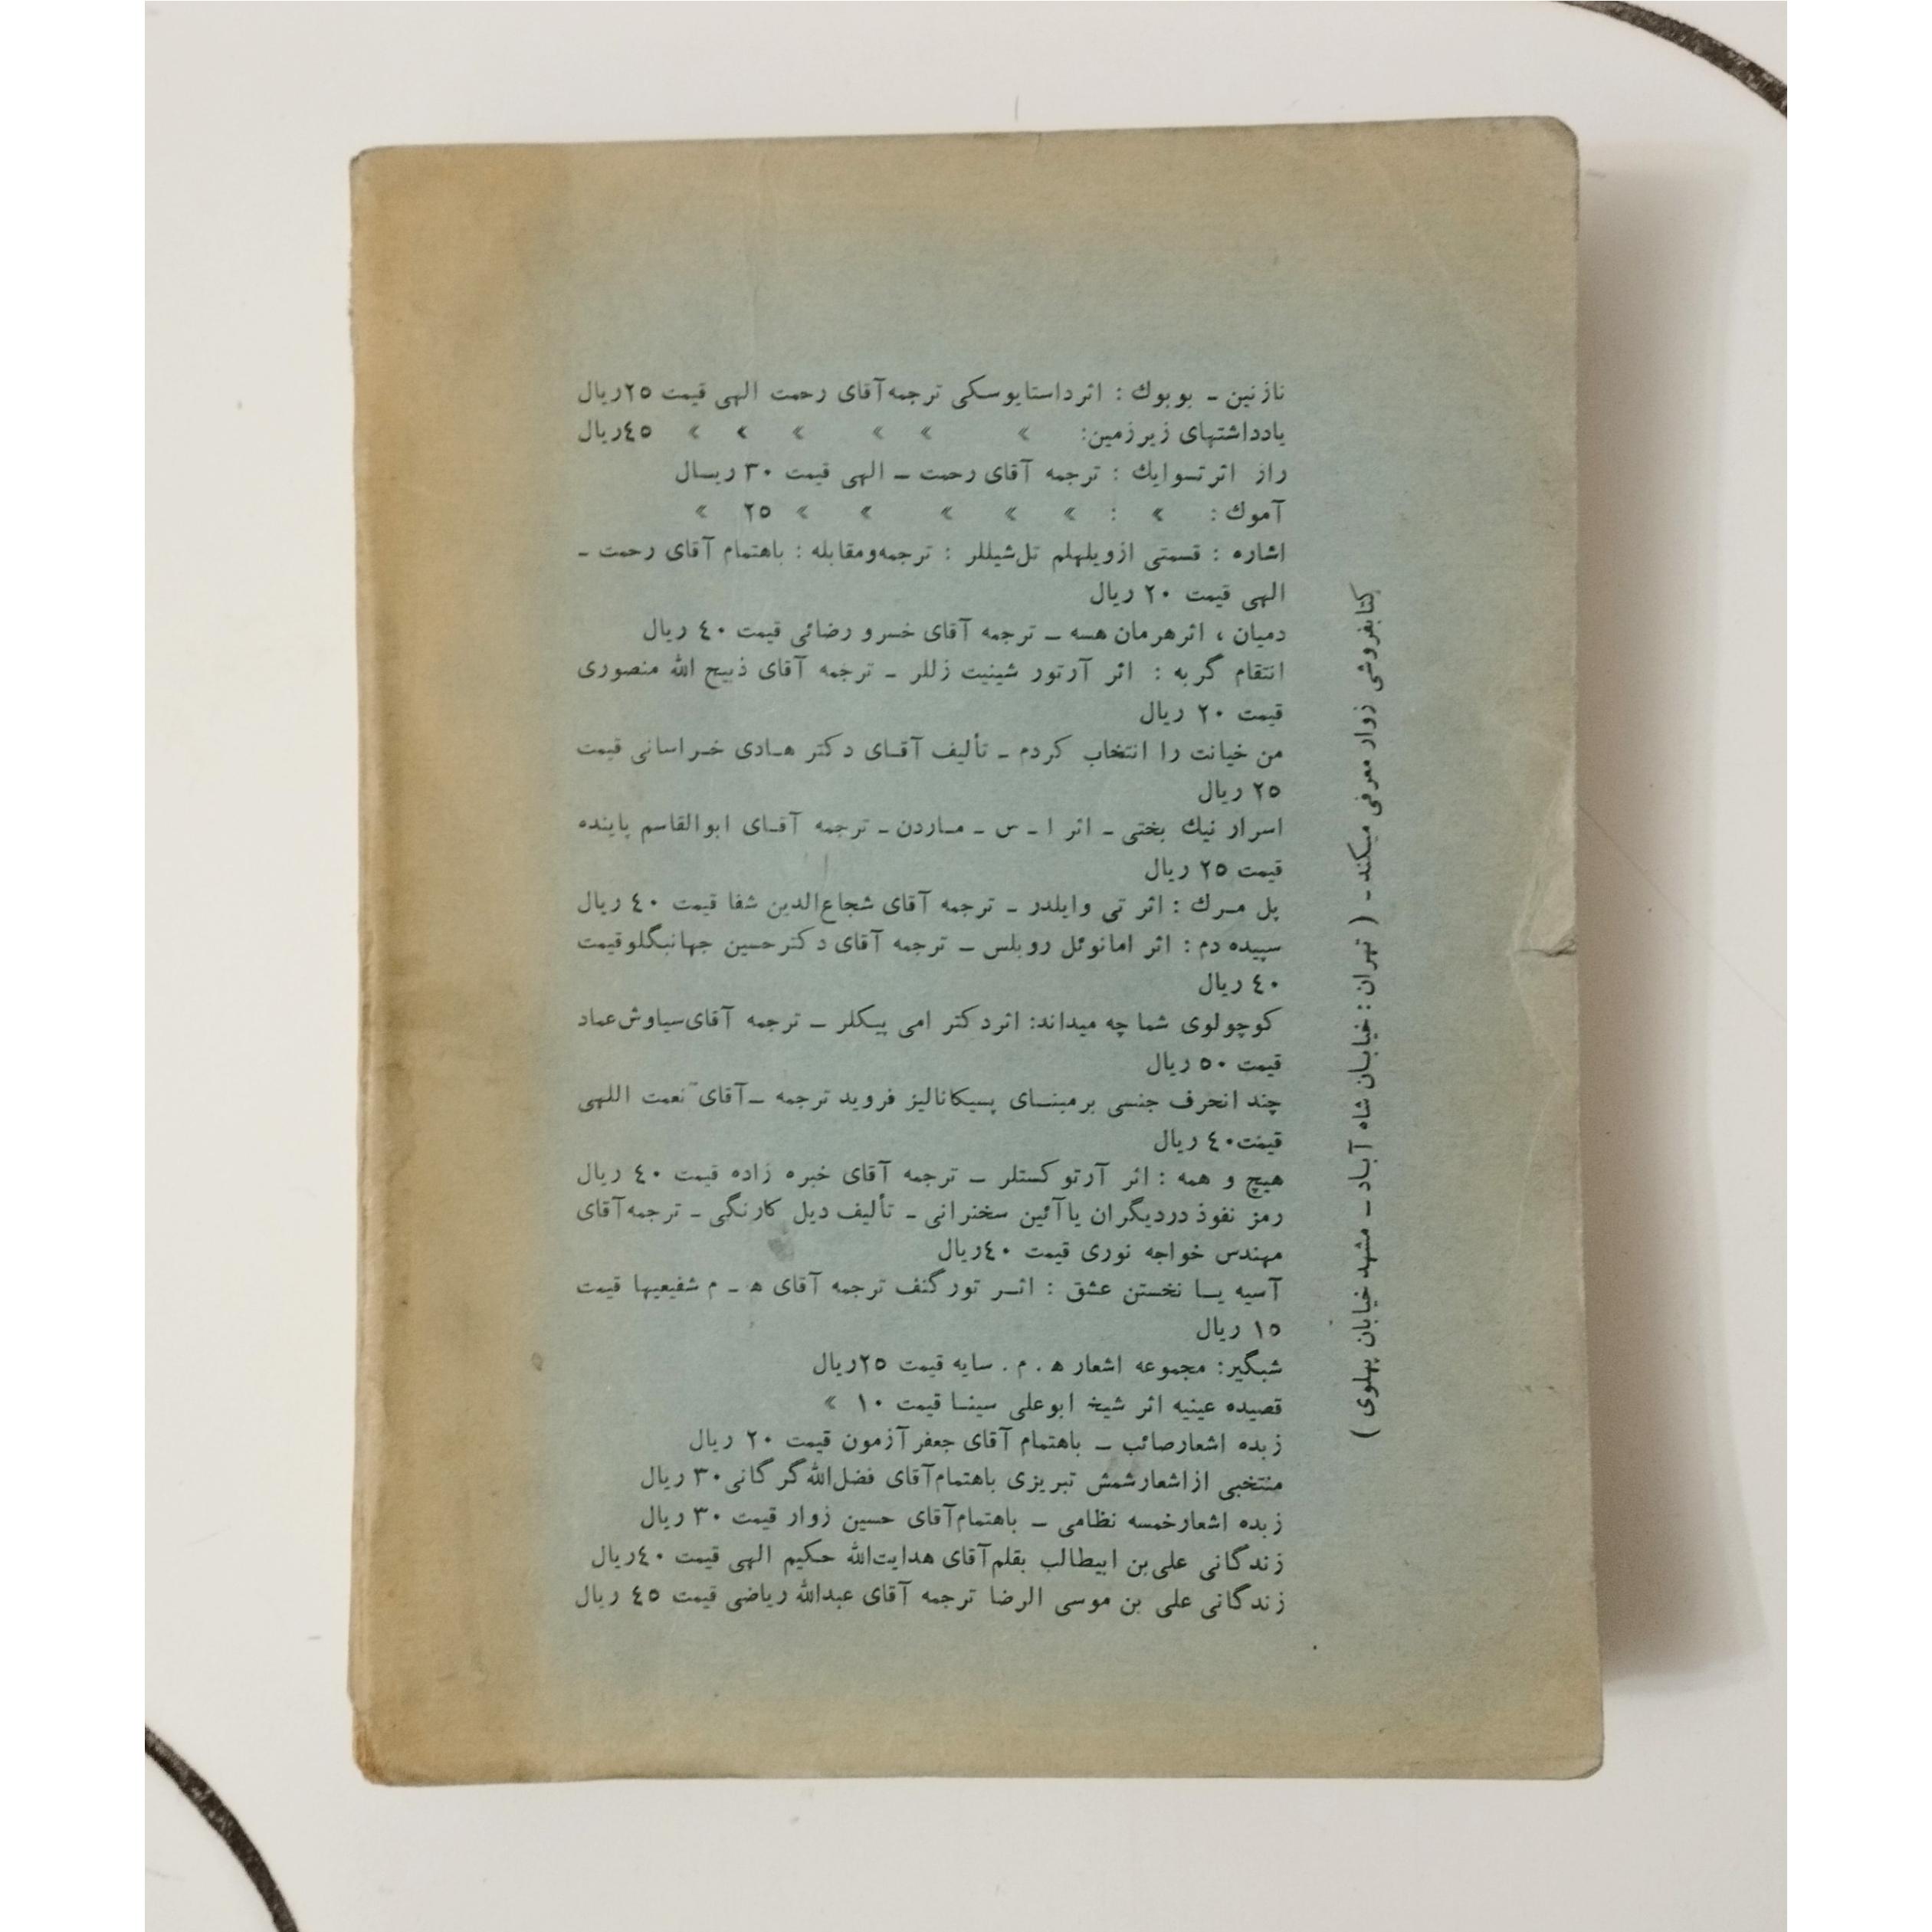 نازنین ـ بوبوك : اثرداستایوسکی ترجمه آقای رحمت الهی قیمت ۲۵ریال
یادداشتهای زیرزمین: » » » » » » ٤٥ریال
راز اثر تسوایك : ترجمه آقای رحمت ـ الهی قیمت ۳۰ ریسال
آموك : » : » » » » » ۲۵ »
اشاره : قسمتی ازویلهلم تل‌شیللر : ترجمه‌ومقابله : باهتمام آقای رحمت ـ
الهی قیمت ۲۰ ریال
دمیان ، اثرهرمان هسه ـ ترجمه آقای خسرو رضائی قیمت ٤۰ ریال
انتقام گربه : اثر آرتور شینیت زللر ـ ترجمه آقای ذبیح الله منصوری
قیمت ۲۰ ریال
من خیانت را انتخاب کردم ـ تألیف آقـای دکتر هـادی خـراسانی قیمت
۲۵ ریال
اسرار نیك بختی ـ اثر ا ـ س ـ مـاردن ـ ترجمه آقـای ابوالقاسم پاینده
قیمت ۲۵ ریال
پل مـرك : اثر تی وایلدر ـ ترجمه آقای شجاع‌الدین شفا قیمت ٤۰ ریال
سپیده دم : اثر امانوئل روبلس ـ ترجمه آقای دکترحسین جهانبگلوقیمت
٤۰ ریال
کوچولوی شما چه میداند: اثردکتر امی پیکلر ـ ترجمه آقای‌سیاوش‌عماد
قیمت ۵۰ ریال
چند انحرف جنسی برمبنـای پسیکانالیز فروید ترجمه ـ آقای نعمت اللهی
قیمت٤۰ ریال
هیچ و همه : اثر آرتوکستلر ـ ترجمه آقای خبره زاده قیمت ٤۰ ریال
رمز نفوذ دردیگران یاآئین سخنرانی ـ تألیف دیل کارنگی ـ ترجمه‌آقای
مهندس خواجه نوری قیمت ٤۰ریال
آسیه یـا نخستن عشق : اثـر تورگنف ترجمه آقای ه ـ م شفیعیها قیمت
۱۵ ریال
شبگیر: مجموعه اشعار ه . م . سایه قیمت ۲۵ریال
قصیده عینیه اثر شیخ ابوعلی سینـا قیمت ۱۰ »
زبده اشعارصائب ـ باهتمام آقای جعفرآزمون قیمت ۲۰ ریال
منتخبی ازاشعارشمش تبریزی باهتمام‌آقای فضل‌الله‌گرگانی ۳۰ ریال
زبده اشعارخمسه نظامی ـ باهتمام‌آقای حسین زوار قیمت ۳۰ ریال
زندگانی علی‌بن ابیطالب بقلم‌آقای هدایت‌الله حکیم الهی قیمت ٤۰ریال
زندگانی علی بن موسی الرضا ترجمه آقای عبدالله ریاضی قیمت ٤٥ ریال
کتابفروشی زوار معرفی میکند ـ ( تهران : خیابـان شاه آبـاد ـ مشهد خیابان پهلوی )